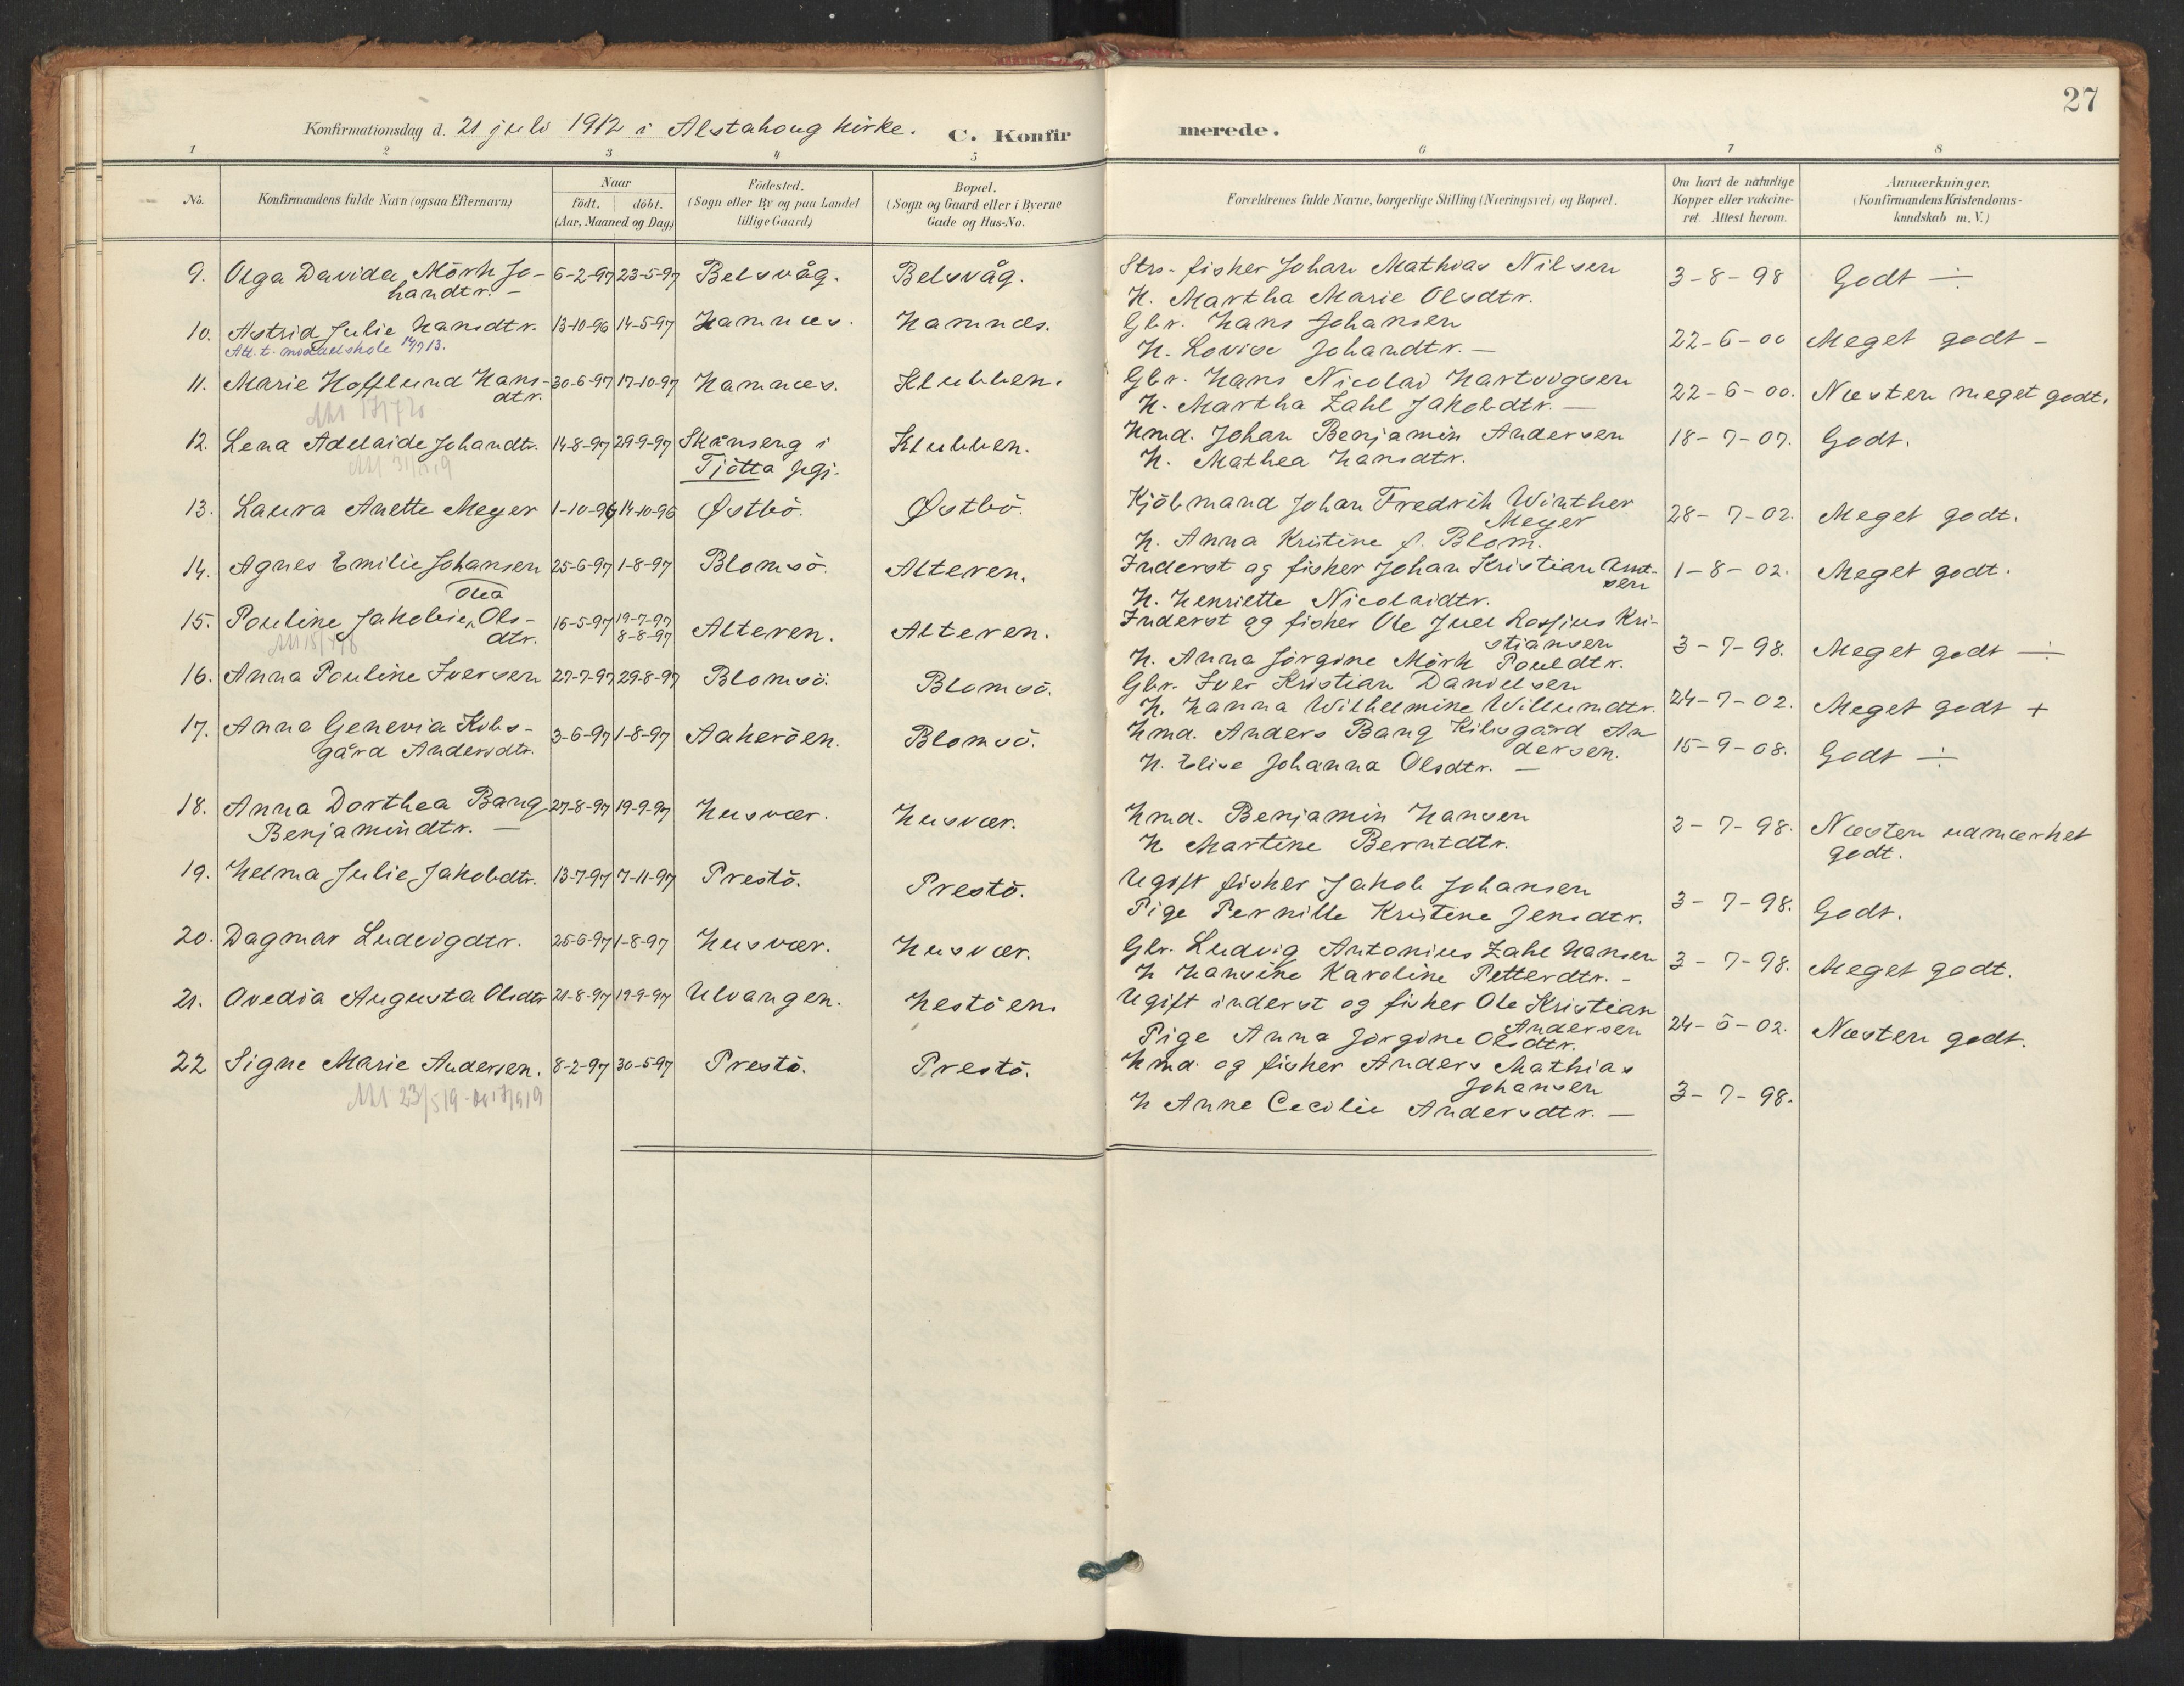 27
Konfirmationsdag d. 21 juli 1912 i Alstahoug kirke. C. Konfirmerede.
1 2 3 4 5 6 7 8
No. Konfirmandens fulde Navn (ogsaa Efternavn) Naar födt. döbt. (Aar, Maaned og Dag) Födested. (Sogn eller By og paa Landet tillige Gaard) Bopæl. (Sogn og Gaard eller i Byerne Gade og Hus-No. Forældrenes fulde Navne, borgerlige Stilling (Næringsvei) og Bopæl. Om havt de naturlige Kopper eller vakcineret. Attest herom. Anmærkninger. (Konfirmandens Kristendomskundskab m. V.)
9. Olga Davida Mörk Jo- 6-2-97 23-5-97 Belsvåg. Belsvåg. Strs. fisker Johan Mathias Nilsen 3-8-98 Godt ÷
handtr. - H. Martha Marie Olsdtr.
10. Astrid Julie Hansdtr. 13-10-96 14-5-97 Hamnes. Hamnes. Gbr. Hans Johansen 22-6-00 Meget godt -
Att. t. middelskole 14/7 13. H. Lovise Johandtr. -
11. Marie Hofflund Hans- 30-6-97 17-10-97 Hamnes. Klubben. Gbr. Hans Nicolai Hartvigsen 22-6-00. Næsten meget godt.
dtr. H. Martha Zahl Jakobdtr. -
12. Lena Adelaide Johandtr. 14-8-97 29-9-97 Skånseng i Klubben. Hmd. Johan Benjamin Andersen 18-7-07. Godt.
Tjötta pgj. H. Mathea Hansdtr.
13. Laura Anette Meyer 1-10-96 14-10-96 Østbö. Østbö. Kjöbmand Johan Fredrik Winther 28-7-02. Meget godt.
Meyer
H. Anna Kristine f. Blom.
14. Agnes Emilie Johansen 25-6-97 1-8-97 Blomsö. Alteren. Inderst og fisker Johan Kristian Amt- 1-8-02. Meget godt.
sen
H. Henriette Nicolaidtr.
Olea
15. Pouline Jakobie Ols- 16-5-97 19-7-97 Alteren. Alteren. Inderst og fisker Ole Juel Lossius Kri- 3-7-98. Meget godt ÷
dtr. 8-8-97 stiansen
H. Anna Jörgine Mörk Pouldtr.
16. Anna Pouline Iversen 27-7-97 29-8-97 Blomsö. Blomsö. Gbr. Iver Kristian Danielsen 24-7-02. Meget godt +
H. Hanna Wilhelmine Willumdtr.
17. Anna Genevia Kibs- 3-6-97 1-8-97 Aakeröen. Blomsö. Hmd. Anders Bang Kibsgård An 15-9-08. Godt ÷
gård Andersdtr. dersen.
H. Elise Johanna Olsdtr. -
18. Anna Dorthea Bang 27-8-97 19-9-97 Husvær. Husvær. Hmd. Benjamin Hansen 2-7-98. Næsten udmærket
Benjamindtr. - H Martine Berntdtr. godt.
19. Helma Julie Jakobdtr. 13-7-97 7-11-97 Prestö. Prestö. Ugift fisker Jakob Johansen 3-7-98. Godt.
Pige Pernille Kristine Jensdtr.
20. Dagmar Ludvigdtr. 25-6-97 1-8-97 Husvær. Husvær. Gbr. Ludvig Antonius Zahl Hansen 3-7-98. Meget godt.
H Hansine Karoline Petterdtr. -
21. Ovedia Augusta Olsdtr 21-8-97 19-9-97 Ulvangen. Hestöen. Ugift inderst og fisker Ole Kristian 24-5-02. Næsten godt.
Andersen
Pige Anna Jörgine Olsdtr.
22 Signe Marie Andersen. 8-2-97 30-5-97 Prestö. Prestö. Hmd. og fisker Anders Mathias 3-7-98.
Johansen
H Anne Cecilie Andersdtr. -